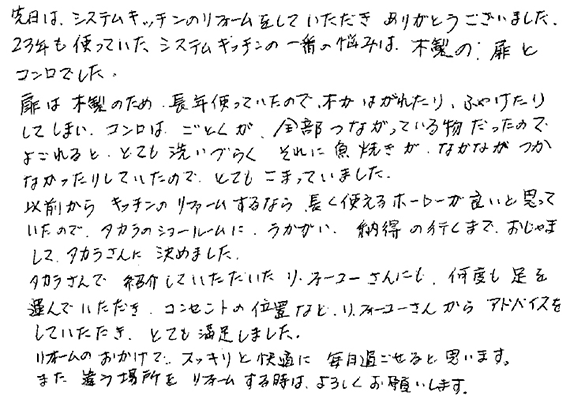 先日は、システムキッチンのリフォームをしていただき ありがとうございました。
23年も使っていた システムキッチンの一番の悩みは、木製の扉と
コンロでした。
扉は木製のため、長年使っていたので、木がはがれたり、ふやけたり
してしまい、コンロは、ごとくが、全部つながっている物だったので
よごれると、とても洗いづらく それに魚焼きが、なかなかつか
なかったりしていたので、とてもこまっていました。
以前から キッチンのリフォームするなら、長く使えるホーローが良いと思って
いたので、タカラのショールームに、うかがい、納得の行くまで、おじゃま
して、タカラさんに 決めました。
タカラさんで 紹介していただいた リ・フォーユーさんにも、何度も足を
運んでいただき、コンセントの位置など、リ・フォーユーさんから アドバイスを
していただき、とても満足しました。
リフォームのおかげで、スッキリと快適に 毎日過ごせると思います。
また 違う場所を リフォームする時は、よろしくお願いします。